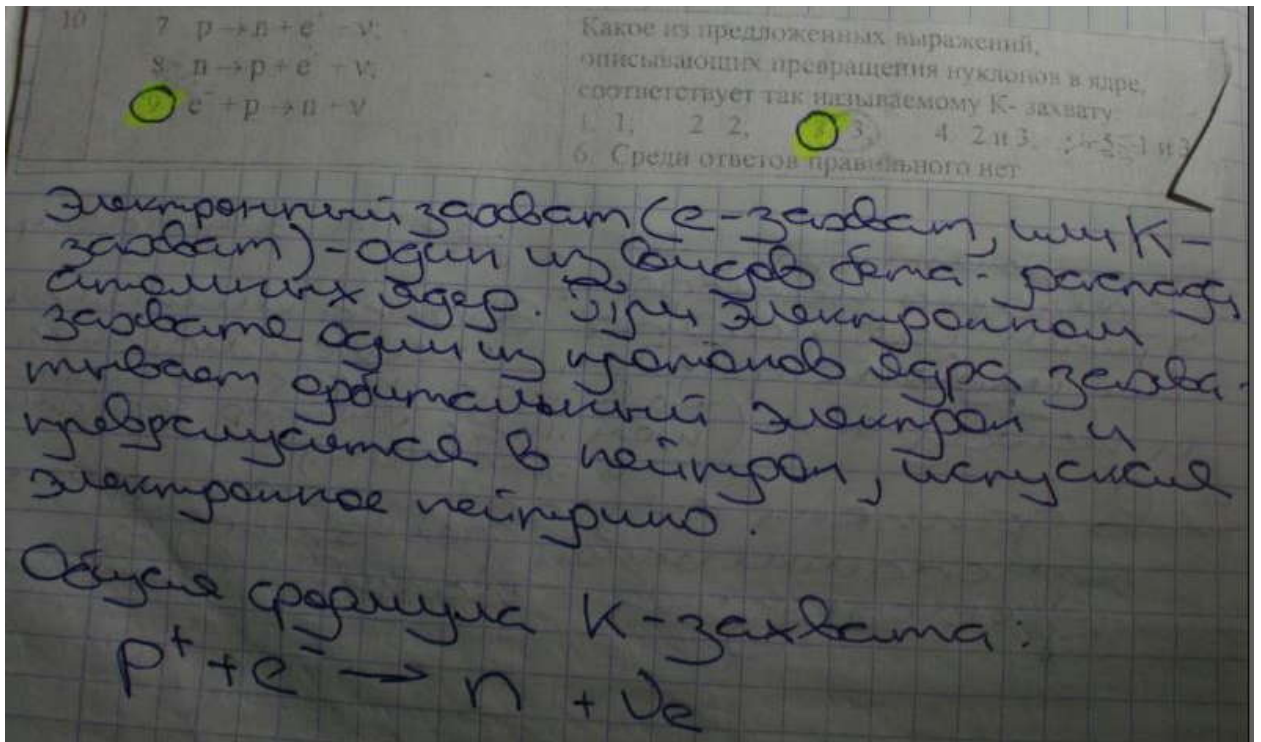 10
7 p→n+e⁺+ν;
8 n→p+e⁻+ν;
9 e⁻+p→n+ν
Какое из предложенных выражений,
описывающих превращения нуклонов в ядре,
соответствует так называемому К- захвату:
1. 1; 2 2, 3. 3, 4. 2 и 3, 5 1 и 3
6. Среди ответов правильного нет
Электронный захват (е-захват, или К-
захват) - один из видов бета-распада
атомных ядер. При электронном
захвате один из протонов ядра захва-
тывает орбитальный электрон и
превращается в нейтрон, испуская
электронное нейтрино.
Общая формула К-захвата:
p⁺+e⁻ → n + νe